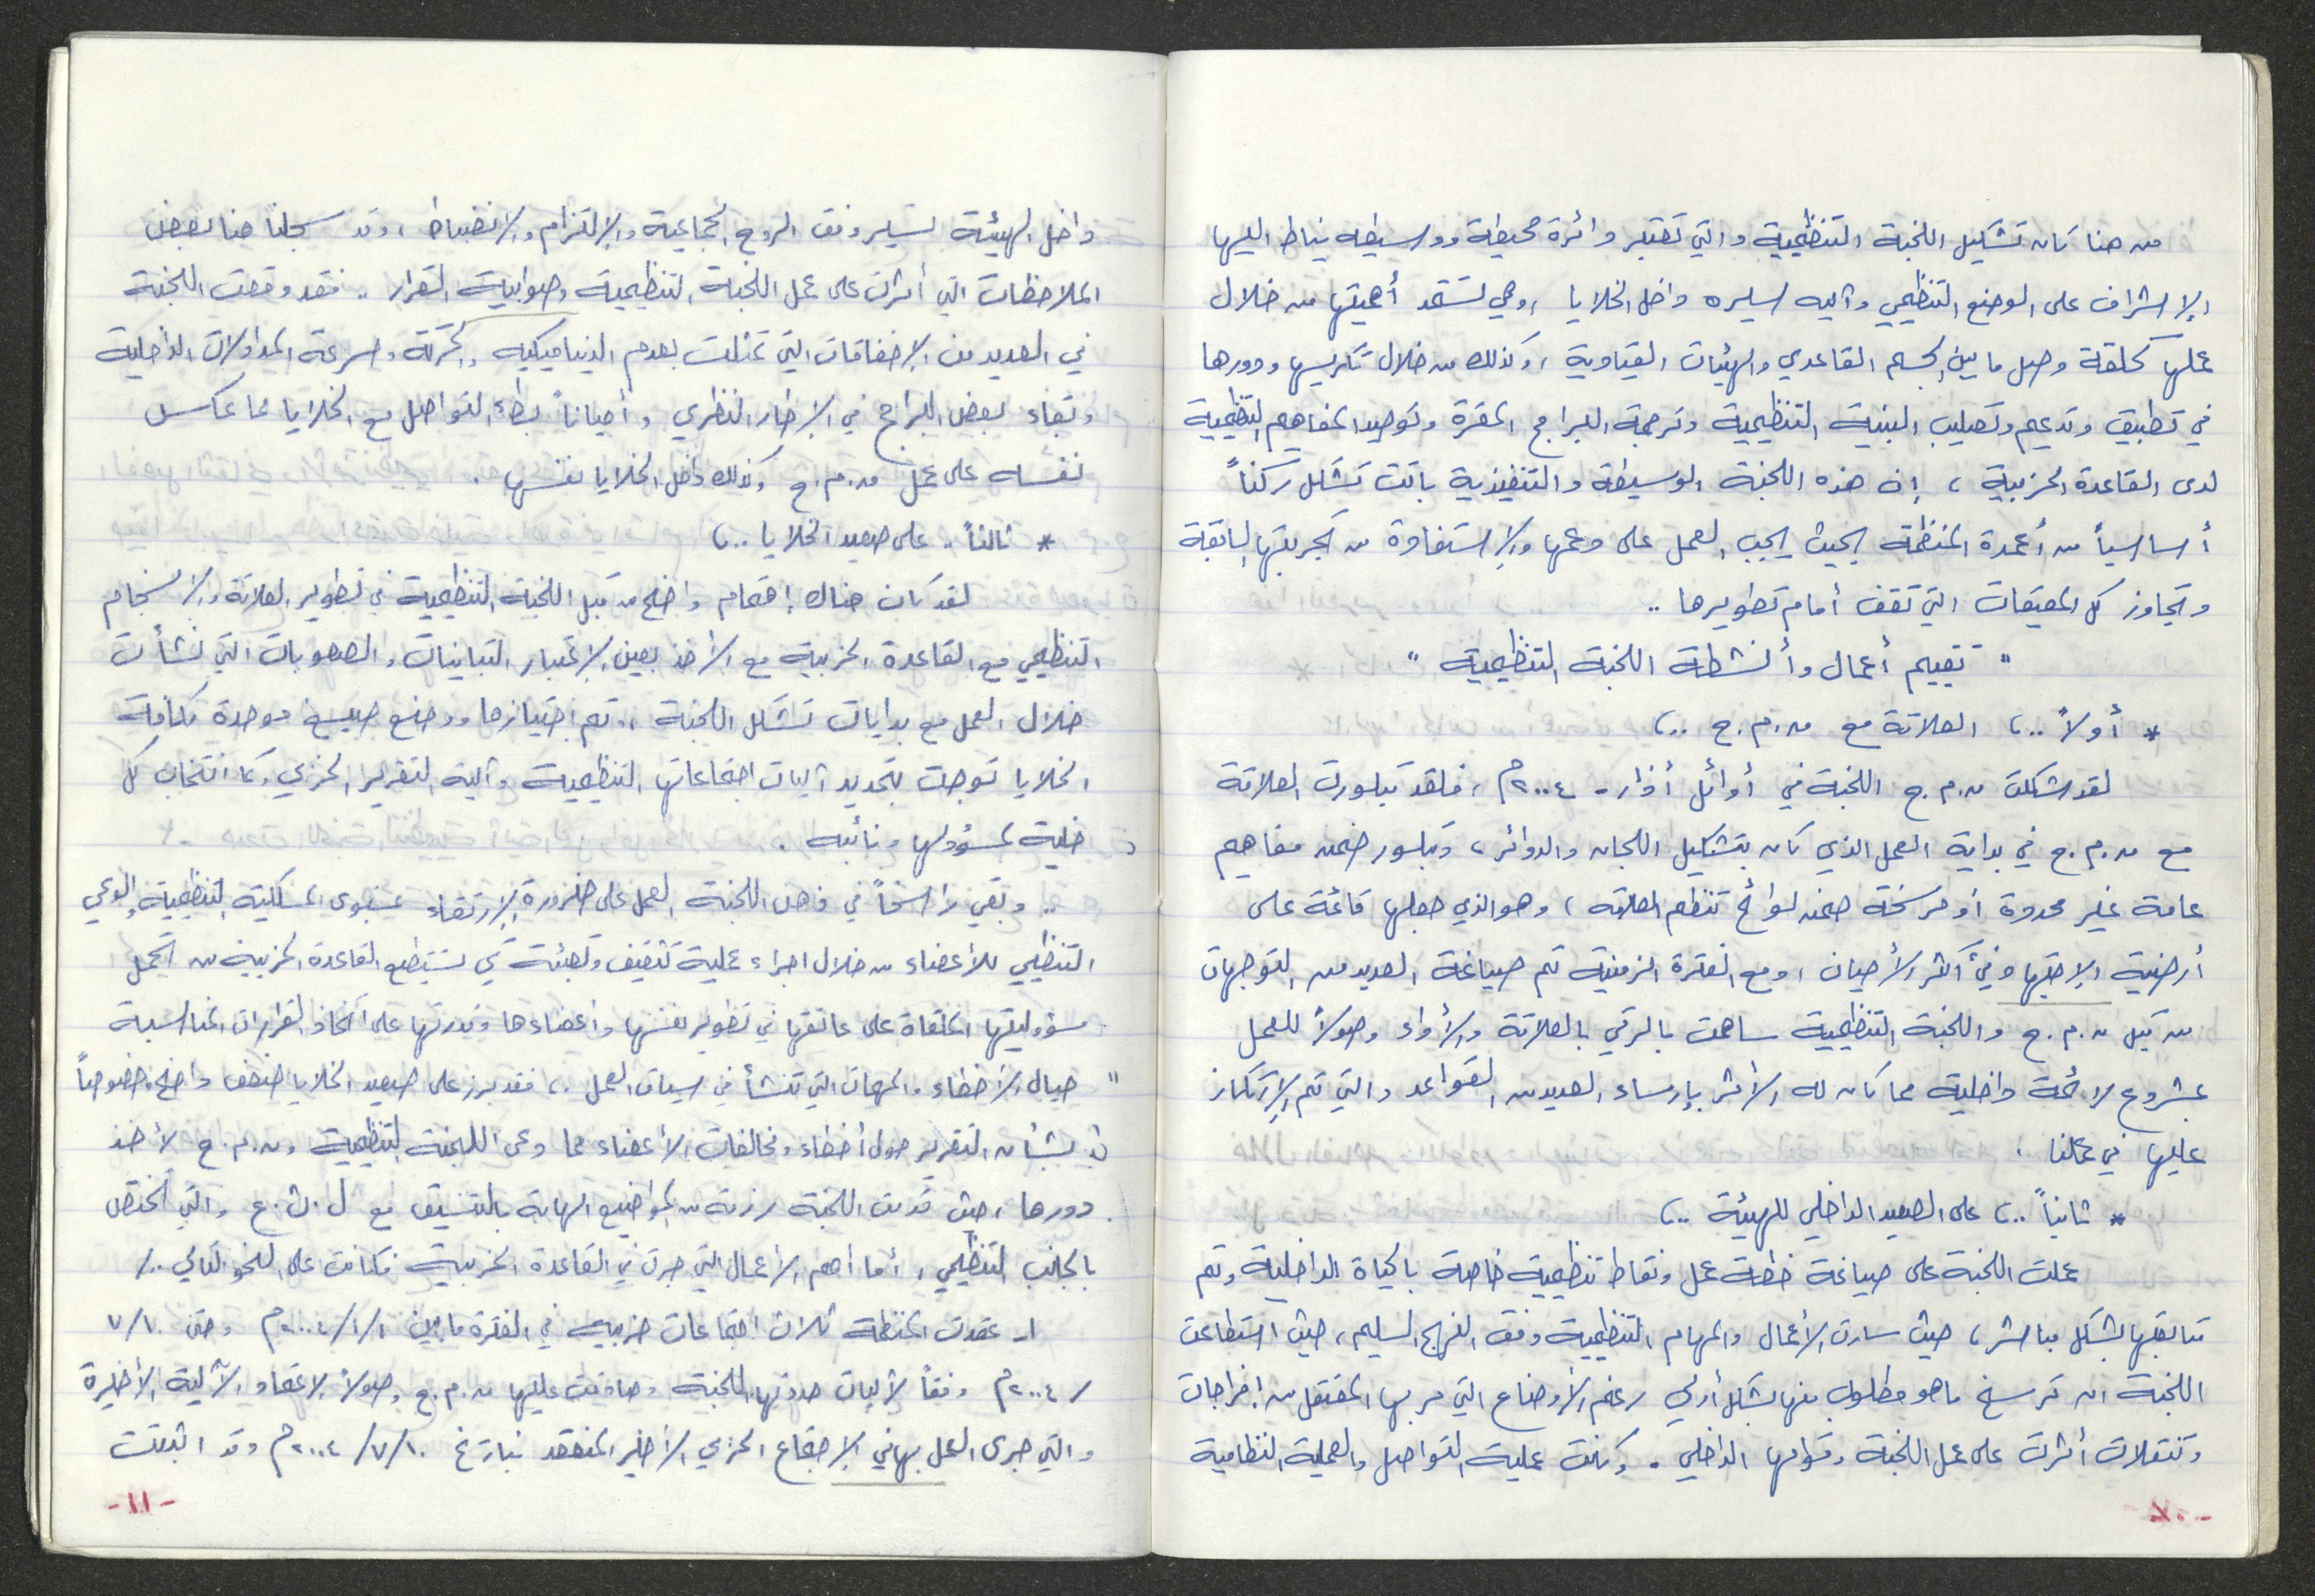 من هنا كان تشكيل اللجنة التنظيمية والتي تعتبر دائرة محيطة ووسيطه يناط اليها
الإشراف على الوضع التنظيمي وآليه سيره داخل الخلايا ، وهي تستمد أهميتها من خلال
عملها كحلقة وصل ما بين الجسم القاعدي والهيئات القيادية ، وكذلك من خلال تكريسها ودورها
في تطبيق وتدعيم وتصليب البنية التنظيمية وترجمة البرامج المقرة وتوحيد المفاهيم التنظيمية
لدى القاعدة الحزبية ، إن هذه اللجنة الوسيطة والتنفيذية باتت تشكل ركناً
أساسياً من أعمدة المنظمة بحيث يجب العمل على دعمها والإستفادة من تجربتها السابقة
وتجاوز كل المعيقات التي تقف أمام تطويرها ..
" تقييم أعمال وأنشطة اللجنة التنظيمية "
* أولاً ..، العلاقة مع م.م.ح ..،
لقد شكلت م.م.ح اللجنة في أوائل أذار - ٢٠٠٤م ، فلقد تبلورت العلاقة
مع م.م.ح في بداية العمل الذي كان بتشكيل اللجان والدوائر ، وتبلور ضمن مفاهيم
عامة غير محددة أو مرسخة ضمن لوائح تنظم العلاقه ، وهو الذي جعلها قائمة على
أرضية الإجتهاد في أكثر الأحيان ، ومع الفترة الزمنية تم صياغة العديد من التوجهات
من قبل م.م.ح واللجنة التنظيمية ساهمت بالرقي بالعلاقة والأداء وصولاً للعمل
بمشروع لائحة داخلية مما كان له الأثر بإرساء العديد من القواعد والتي تم الإرتكاز
عليها في عملنا .
* ثانياً ..، على الصعيد الداخلي للهيئة ..،
عملت اللجنة على صياغة خطة عمل ونقاط تنظيمية خاصة بالحياة الداخلية وتم
متابعتها بشكل مباشر ، حيث سارت الأعمال والمهام التنظيمية وفق النهج السليم ، حيث استطاعت
اللجنة ان ترسخ ما هو مطلوب منها بشكل أولي رغم الأوضاع التي مر بها المعتقل من إفراجات
وتنقلات أثرت على عمل اللجنة وقوامها الداخلي . وكانت عملية التواصل والعملية النظامية
- ١٠ -
داخل الهيئة تسير وفق الروح الجماعية والإلتزام والإنضباط ، وقد سجلنا هنا بعض
الملاحظات التي أثرت على عمل اللجنة التنظيمية وصوابية القرار .. فقد وقعت اللجنة
في العديد من الإخفاقات التي تمثلت بعدم الدينياميكيه والحركة وسرعة المداولات الداخلية
وبقاء بعض البرامج في الإطار النظري وأحياناً بطء التواصل مع الخلايا مما عكس
نفسه على عمل م.م.ح وكذلك داخل الخلايا نفسها .
* ثالثاً .. على صعيد الخلايا ..،
لقد كان هناك إهتمام واضح من قبل اللجنة التنظيمية في تطوير العلاقة والإنسجام
التنظيمي مع القاعدة الحزبية مع الأخذ بعين الإعتبار التباينات والصعوبات التي نشأت
خلال العمل مع بدايات تشكل اللجنة ، وتم اجتيازها ووضع صيغ موحدة لكافة
الخلايا توجت بتحديد آليات اجتماعاتها التنظيمية وآلية التقرير الحزبي ، كما انتخاب كل
خلية لمسؤولها ونائبه .
.. وبقي راسخاً في ذهن اللجنة العمل على ضرورة الإرتقاء بمستوى المسلكية التنظيمية والوعي
التنظيمي للأعضاء من خلال اجراء عملية تثقيف وتعبئة كي تستطيع القاعدة الحزبية من تحمل
مسؤوليتها الملقاة على عاتقها في تطوير نفسها واعضاءها وقدرتها على اتخاذ القرارات المناسبة
حيال الأخطاء والمهمات التي تنشأ في سياق العمل ، فقد برز على صعيد الخلايا ضعف واضح وخصوصاً
بشأن التقرير حول أخطاء ومخالفات الأعضاء مما دعى اللجنة التنظيمية و م.م.ح لأخذ
دورها ، حيث قدمت اللجنة رزمة من المواضيع الهامة بالتنسيق مع ل.ث.ع والتي تختص
بالجانب التنظيمي ، أما أهم الأعمال التي جرت في القاعدة الحزبية فكانت على النحو التالي ../
١ـ عقدت المنظمة ثلاث اجتماعات حزبية في الفترة ما بين ١/١/٢٠٠٤م وحتى ٧/١٠
/٢٠٠٤م وفقاً لآليات حددتها اللجنة وصادقت عليها م.م.ح وصولاً لاعتماد الآلية الأخيرة
والتي جرى العمل بها في الإجتماع الحزبي الأخير المنعقد بتاريخ ١٠/٧/٢٠٠٤م وقد اثبتت
- ١١ -